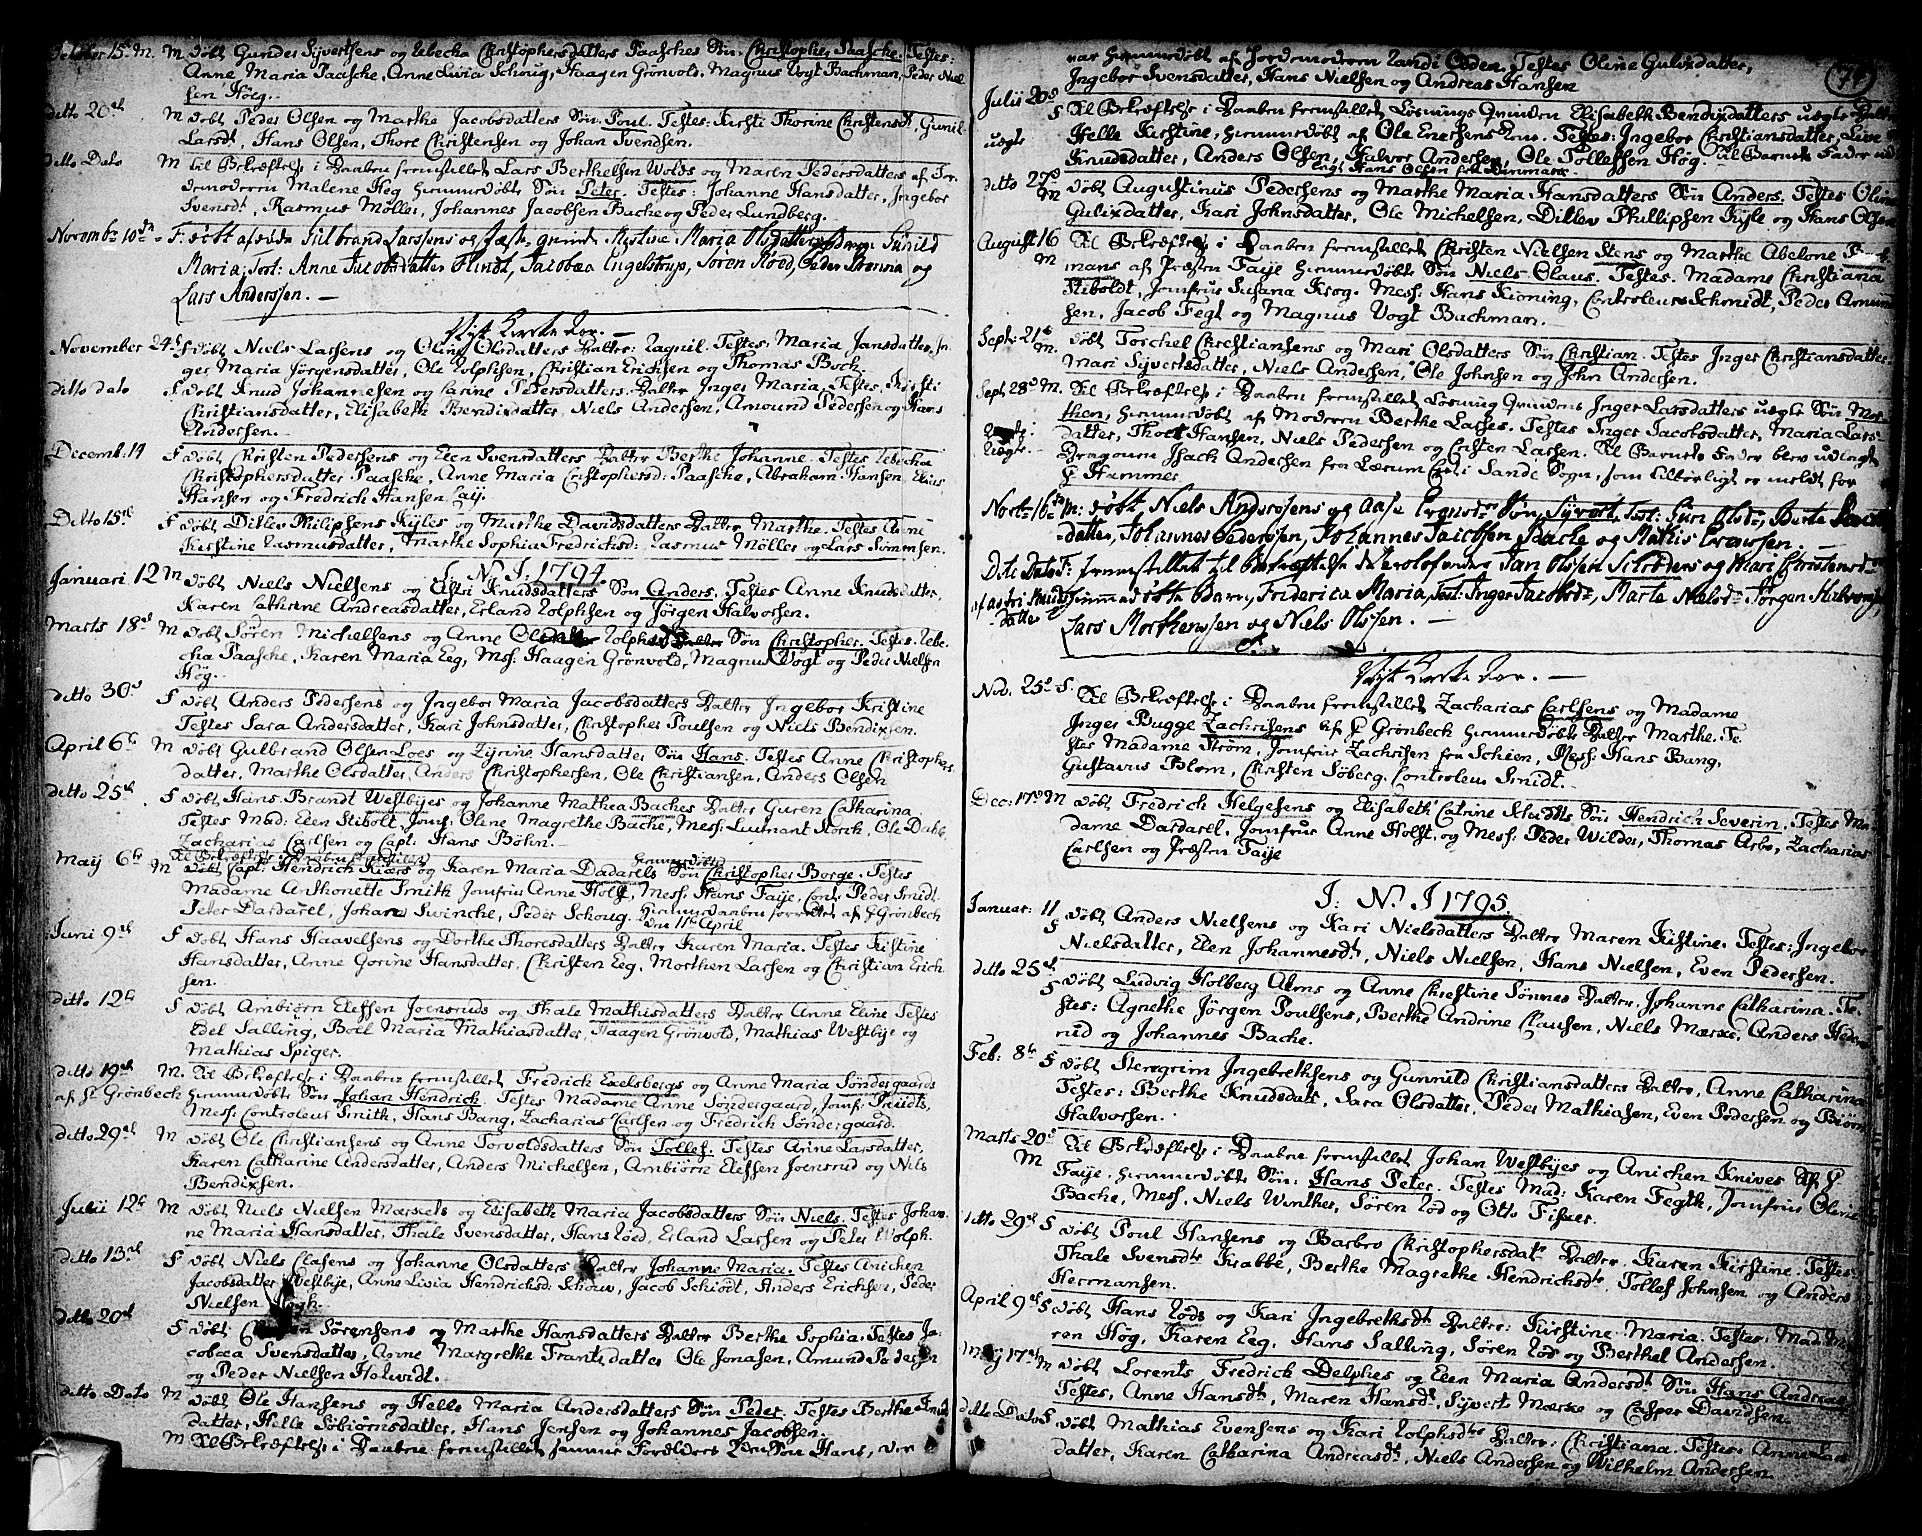 October 15d M. døbt Gunder Syvertsens og Rebecka Christophersdatters Paasches Søn Christopher Paasche. Testes:
Anne Maria Paasche, Anne Livia Schoug, Haagen Grönvold, Magnus Vogt Bachman, Peder Niel
sen Höeg.
ditto 20de M døbt Peder Olsen og Marthe Jacobsdatters Søn Poul. Testes: Kirsti Thorine Christensdt, Gunil
Larsdt, Hans Olsen, Thore Christensen og Johan Svendsen.
ditto Dato M til Bekræftelse i Daaben fremstillet Lars Berthelsen Wolds og Maren Pedersdatters af Jor
demoderen Malene Høg hiemmedøbte Søn Peter. Testes: Johanne Hansdatter, Ingebor
Svensdt, Rasmus Møller, Johannes Jacobsen Bache og Peder Lundberg.
Novembr 10de F. døbt
Maria; Test: Anne Jacobsdatter Flindt, Jacobæa Engelstrup, Sören Röed, Peder Brenna og
Lars Anderssen.
November 24de F døbt Niels Larsens og Oline Olsdatters Datter: Ragnil. Testes: Maria Jansdatter, In
ger Maria Jørgensdatter, Ole Rolphsen, Christian Erichsen og Thomas Boch
ditto dato F døbt Knud Johannesen og Carine Pedersdatters Datter Inger Maria. Testes Kirsti
Christiansdatter, Elisabeth Bendixdatter, Niels Andersen, Amound Pedersen og Hans
Andersen.
Decemb. 14 F døbt Christen Pedersens og Elen Svensdatters Datter Berthe Johanne. Testes Rebecha
Christophersdatter Paasche, Anne Maria Christophersd: Paasche, Abraham Hansen, Elias
Hansen og Fredrich Hansen Caj.
Ditto 15de F døbt Ditlev Philipsens Kyles og Marthe Davidsdatters Datter Marthe. Testes Anne
Kirstine Rasmusdatter, Marthe Sophia Fredrichsd: Rasmus Møller og Lars Simensen.
I. N. J. 1794
Januari 12 M døbt Niels Nielsens og Astri Knudsdatters Søn Anders, Testes Anne Knudsdatter,
Karen Cathrine Andreasdatter, Erland Rolphsen og Jörgen Halvorsen.
Marts 18de M døbt Sören Michelsens og Anne Rolphsdatter Søn Christopher. Testes Rebe-
cha Paasche, Karen Maria Eeg, Mess: Haagen Grönvold, Magnus Vogt og Peder Nielsen
Høg.
ditto 30d F døbt Anders Pedersens og Ingebor Maria Jacobsdatters Datter Ingebor Kirstine
Testes Sara Andersdatter, Kari Johnsdatter, Christopher Poulsen og Niels Bendixsen.
April 6te M døbt Gulbrand Olsen Loes og Zyrine Hansdatter Søn Hans. Testes Anne Christophers
datter, Marthe Olsdatter, Anders Christophersen, Ole Christiansen, Anders Olsen
ditto 25de F døbt Hans Brandt Westbyes og Johanne Mathea Baches Datter Guren Catharina
Testes Mad: Elen Stibolt, Jomf: Oline Magrethe Bache, Mess: Lieutnant Storck, Ole Dahl,
Zacharias Carlsen og Capt. Hans Böhn.
May 6te M døbt Capt: Hendrich Kiærs og Karen Maria Dadarels Søn Christopher Borge. Testes
Madame Anthonette Smith Jomfrue Anne Holst, Mess: Hans Faye, Cont: Peder Smidt
Peter Dardarel, Johan Swincke, Peder Schoug. hiemmedaaben forrettet af H Grönbech
den 11te April
Juni 9de F døbt Hans Haavelsens og Dorthe Thoresdatters Datter Karen Maria. Testes Kirstine
Hansdatter, Anne Gorine Hansdatter, Christen Eeg, Morthen Larsen og Christian Erich
sen.
ditto 12te F døbt Ambiörn Elefsen Joensruds og Thale Mathisdatters Datter Anne Eline Testes
Edel Salling, Boel Maria Mathiasdatter, Haagen Grönvold, Mathias Westbye og
Mathias Spiger.
ditto 19de M. til Bekræftelse i Daaben fremstillet Fredrich Exelsbergs og Anne Maria Söndergaards
af Hr Grönbeck hiemmedøbte Søn Johan Hendrich. Testes Madame Anne Söndergaard, Jomf:
Mess: Controleur Smith, Hans Bang, Zacharias Carlsen og Fredrich Söndergaard.
ditto 29de M døbt Ole Christiansens og Anne Torvoldsdatters Søn Tollef. Testes Anne Larsdatter,
Karen Catharine Andersdatter, Anders Michelsen, Ambiörn Elefsen Joensrud og Nils
Bendixsen.
Julii 12te M døbt Niels Nielsen Mærsets og Elisabeth Maria Jacobsdatters Søn Niels. Testes Johan
ne Maria Hansdatter, Thale Svensdatter, Hans Röed, Erland Larsen og Peter Wolph.
ditto 13de F døbt Niels Clasens og Johanne Olsdatters Datter Johanne Maria. Testes Anichen
Jacobsdatter Westbye, Anne Livia Hendrichsd: Schouw, Jacob Schiødt, Anders Erichsen, Peder
Nielsen Høgh.
ditto 20de F døbt Sørensens og Marthe Hansdatters Datter Berthe Sophia. Testes Ja-
cobæa Svensdatter, Anne Margrethe Frantzdatter Ole Jonasen, Amund Pedersen
og Peder Nielsen Holwidt.
ditto Dato M døbt Ole Hansens og Helle Maria Andersdatters Søn Peder. Testes Berthe Knud
datter, Helle Sebiörnsdatter, Hans Jensen og Johannes Jacobsen.
M til Bekræftelse i Daaben fremstillet samme Forældres Søn Hans, der
74
var hiemmedøbt af Jordemoderen Randi Oden. Testes Oline Gulixdatter,
Ingebor Svensdatter, Hans Nielsen og Andreas Hansen
Julii 20d F til Bekræftelse i Daaben fremstillet Løsnings Qvinden Elisabeth Bendixdatters uægte Datter
uægte Helle Kirstine, hiemmedøbt af Ole Enersens Enke. Testes: Ingebor Christiansdatter, Live
Knudsdatter, Anders Olsen, Halvor Andersen, Ole Tollefsen Hög. til Barnets Fader ud
lagt Hans Olsen fra Danmark
ditto 27d M døbt Augustinus Pedersens og Marthe Maria Hansdatters Søn Anders. Testes Oline
Gulixdatter, Kari Johnsdatter, Ole Michelsen, Ditlev Phillipsen Kyle og Hans Olsen
August 16 M til Bekræftelse i Daaben fremstillet Christen Nielsen Stens og Marthe Abelone
mans af Præsten Faije hiemmedøbte Søn Niels Claus. Testes. Madame Christiana
Stiboldt, Jomfrue Susana Krog. Mess: Hans Kioning, Controleur Schmidt, Peder Amun
sen, Jacob Fegt og Magnus Vogt Bachman.
Septr: 21de M. døbt Torchel Christiansens og Mari Olsdatters Søn Christian. Testes Inger Christiansdatter,
Mari Syvertsdatter, Niels Andersen, Ole Johnsen og John Andersen.
Sept 28d M. til Bekræftelse i Daaben fremstillet Løsning Qvindens Inger Larsdatters uægte Søn Mor
then, hiemmedøbt af Moderen Berthe Larses. Testes Inger Jacobsdatter, Maria Lars
Uægte datter, Thore Hansen, Niels Pedersen og Cristen Larsen. til Barnets Fader blev udlagt
Dragoun Isack Andersen fra Lærum i Sande Sogn, som tilbørligt er meldt for
H Hammer
Novbr 16de M: døbt, Niels Anderssens og Aase Svends Søn, Syvert, Test: Guri Olsdr, Berte
datter, Johannes Pedersen, Johannes Jacobsen Bache og Mathis Evensen.
Dito Dato F: fremstillet til Bekræftelse Jan Olsen Schrøders og Mari Christensd
af Astri Knuds hiemmedøbte Barn, Friderica Maria, Test: Inger Jacobsd, Marte Nielsd Jörgen Halvorsen,
datter Lars Morthenssen og Niels Olssen.
Nov. 25d F. til Bekræftelse i Daaben fremstillet Zacharias Carlsens og Madame
Inger Bugge Zachrisens af H Grönbech hiemmedøbte Datter Marthe. Te
stes Madame Strøm, Jomfrue Zachrisen fra Schien, Mess: Hans Bang,
Gustavus Blom, Christen Söberg, Controleur Smidt.
Dec: 17d M døbt Fredrich Helgesens og Elisabeth Catrine Smidts Søn Hendrich Severin, Testes Ma
dame Dardarel, Jomfrue Anne Holst, og Mess: Peder Wilder, Thomas Arbo, Zacharias
Carlsen og Præsten Faije
I: N. J 1795
Januar: 11 F døbt Anders Nielsens og Kari Nielsdatters Datter Maren Kirstine. Testes: Ingebor
Nielsdatter, Elen Johannesdt, Niels Nielsen, Hans Nielsen, Even Pedersen.
ditto 25de F døbt Ludvig Holberg Alms og Anne Christine Sönnes Datter, Johanne Catharina. Te
stes: Agnethe Jörgen Poulsens, Berthe Andrine Clausen, Niels Mærsæ, Anders Heden
rud og Johannes Bache.
Feb: 8te F døbt Steengrim Ingebrethsens og Gunnild Christiansdatters Datter, Anne Catharina
Testes: Berthe Knudsdatt, Sara Olsdatter, Peder Mathiasen, Even Pedersen og Biörn
Halvorsen.
Marts 20d M til Bekræftelse i Daaben fremstillet Johan Westbyes og Anichen Knives af H
Faije, hiemmedøbte Søn: Hans Peter. Testes Mad: Karen Fegth, Jomfrue Oline
Bache, Mess. Niels Winther, Sören Röd og Otto Fisker.
ditto 29de F døbt Poul Hansens og Barbro Christophersdatr Datter Karen Kirstine. Testes
Thale Svensdtr Krabbe, Berthe Magrethe Hendrichsdtr, Tollef Johnsen og Anders
Hermansen.
April 9de F døbt Hans Röds og Kari Ingebrethsdt Datter: Kirstine Maria. Testes: Mad. Ma
ren Hög, Karen Eeg, Hans Salling, Sören Röd og Berthel Andersen.
May 17de M døbt Lorents Fredrich Delphes og Elen Maria Andersdt Søn Hans Andreas
Testes, Anne Hansdt, Maren Hansdt, Syvert Mærsæ og Casper Davidsen.
ditto Dato F døbt Mathias Evensens og Kari Rolphsdtrs Datter: Christiana. Testes: Anne Lars
datter, Karen Catharina Andreasdt, Niels Andersen og Wilhelm Andersen.